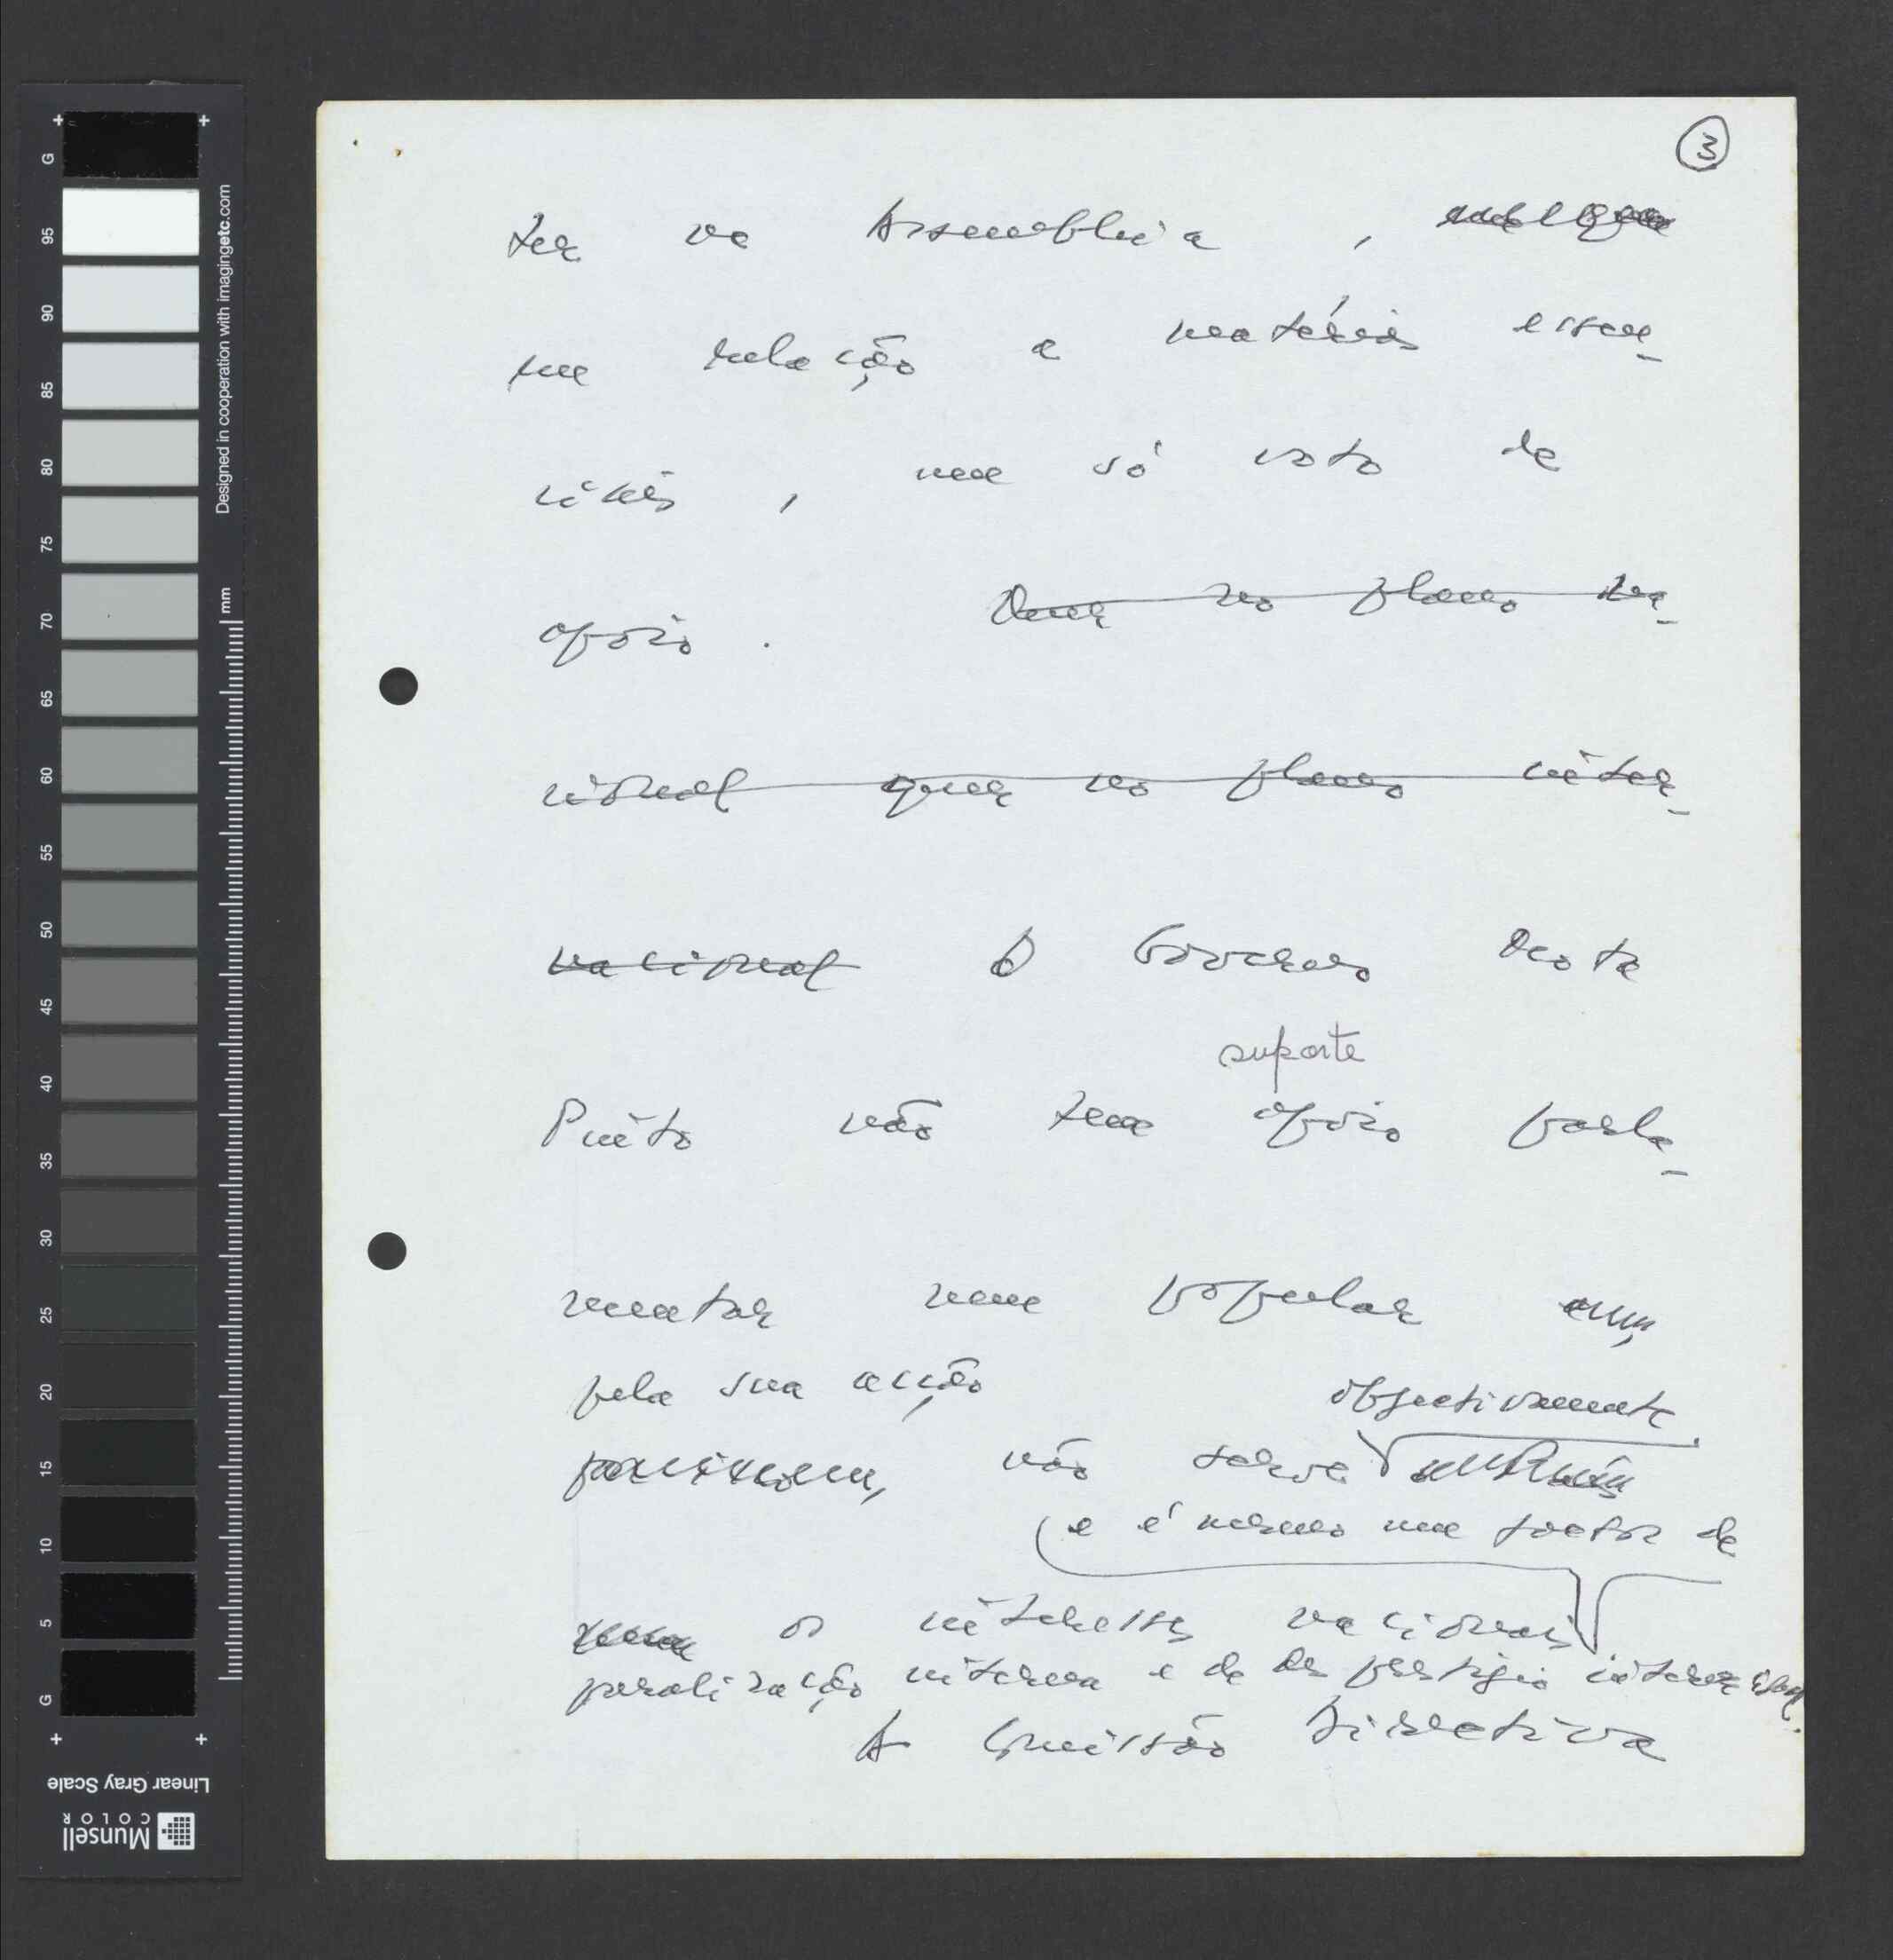 3
ter na Assembleia,
em relação a matérias essen-
ciais, um só voto de
apoio. Quer no plano na-
cional quer no plano inter-
nacional O Governo Mota
suporte
Pinto não tem apoio parla-
mentar nem popular
pela sua acção
objectivamente
não serve
e é mesmo um factor de
os interesses nacionais
paralização interna e de desprestígio internacional.
A Comissão Directiva
G 95 90 85 80 75 70 65 60 55 50 45 40 35 30 25 20 15 10 5 G
Designed in cooperation with imagingetc.com
mm
Linear Gray Scale
Munsell
COLOR